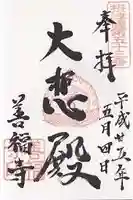 奉拝
平成廿五年
五月四日
大悲殿
善福寺